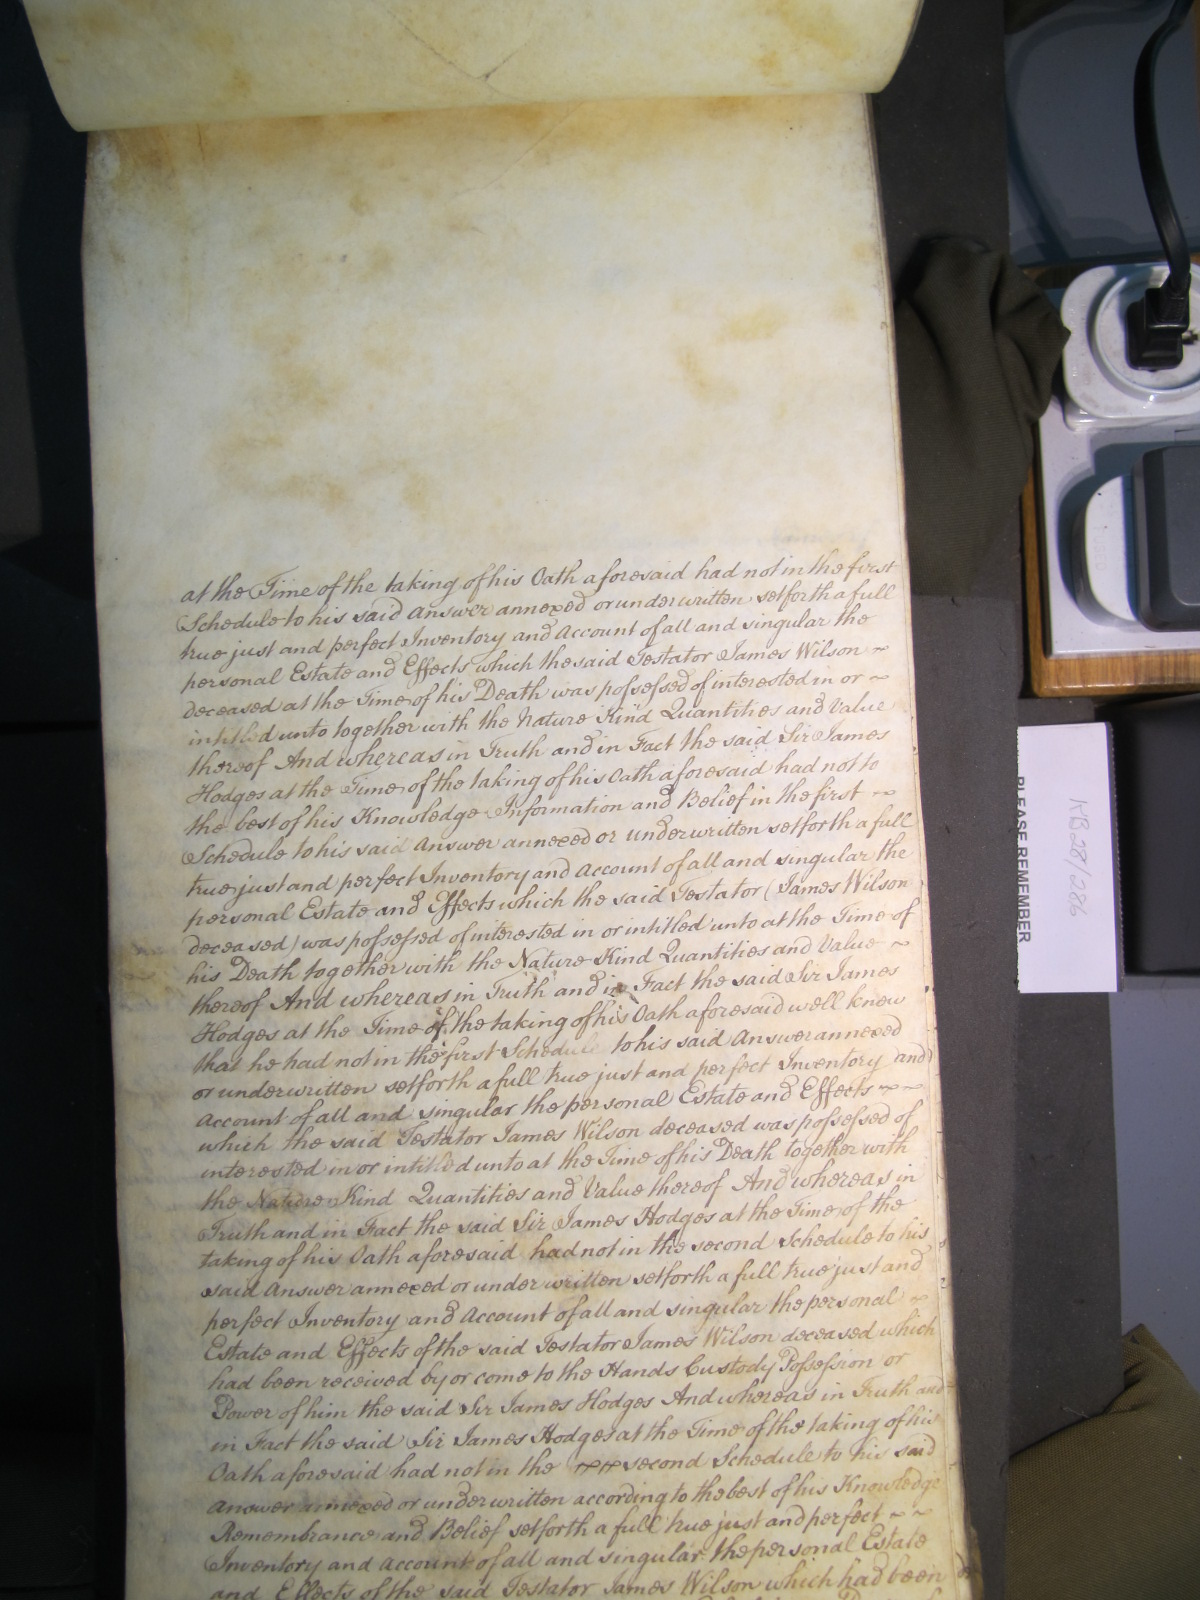 at the Time of the taking of his Oath aforesaid had not in the first
Schedule to his said Answer annexed or underwritten setforth a full
true just and perfect Inventory and Account of all and singular the
personal Estate and Effects which the said Testator James Wilson ~
deceased at the Time of his Death was possessed of interested in or ~
intitled unto together with the Nature Kind Quantities and Value
thereof And whereas in Truth and in Fact the said Sir James
Hodges at the Time of the taking of his Oath aforesaid had not to
the best of his Knowledge Information and Belief in the first ~
Schedule to his said Answer annexed or underwritten setforth a full
true just and perfect Inventory and Account of all and singular the
personal Estate and Effects which the said Testator (James Wilson
deceased) was possessed of interested in or intitled unto at the Time of
his Death together with the Nature Kind Quantities and Value ~
thereof And whereas in Truth and in Fact the said Sir James
Hodges at the Time of the taking of his Oath aforesaid well knew
that he had not in the first Schedule to his said Answer annexed
or underwritten setforth a full true just and perfect Inventory and
Account of all and singular the personal Estate and Effects ~ ~
which the said Testator James Wilson deceased was possessed of
interested in or intitled unto at the Time of his Death together with
the Nature Kind Quantities and Value thereof And whereas in
Truth and in Fact the said Sir James Hodges at the Time of the
taking of his Oath aforesaid had not in the second Schedule to his
said Answer annexed or under written setforth a full true just and
perfect Inventory and Account of all and singular the personal ~
Estate and Effects of the said Testator James Wilson deceased which
had been received by or come to the Hands Custody Possession or
Power of him the said Sir James Hodges And whereas in Truth and
in Fact the said Sir James Hodges at the Time of the taking of his
Oath aforesaid had not in the second Schedule to his said
Answer annexed or underwritten according to the best of his Knowledge
Remembrance and Belief setforth a full true just and perfect ~ ~
Inventory and Account of all and singular the personal Estate
and Effects of the said Testator James Wilson which had been
PLEASE REMEMBER
KB 28/286